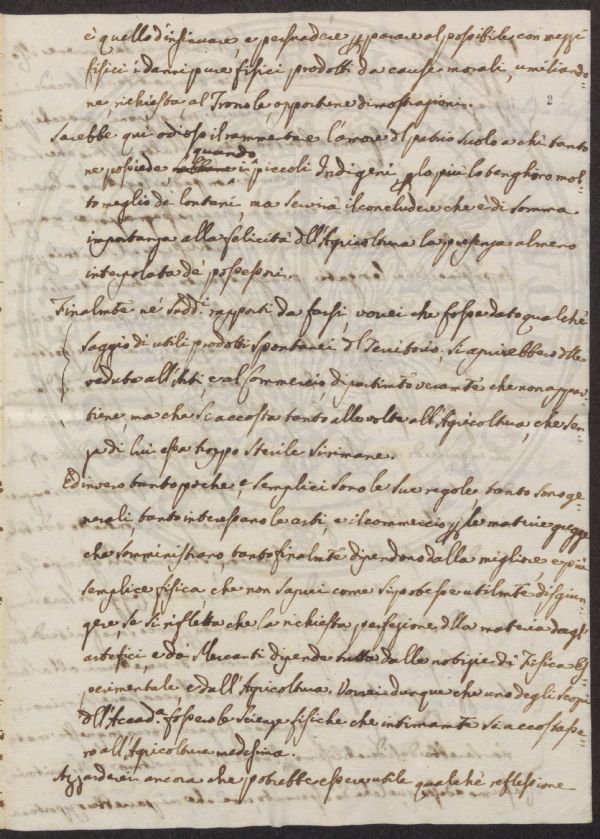 è quello d'insinuare, e persuadere p parare al possibile con mezzi
fisici i danni pure fisici prodotti da cause morali, umiliando-
ne, richiesta, al Trono le opportune dimostrazioni.
2
Sarebbe qui odioso il rammentare l'amore del patrio suolo a chi tanto
ne possiede,
quando
i piccoli Indigeni p lo più lo tenghoro mol-
to meglio de' lontani, ma servirà il concludere che è di somma
importanza alla felicità dell'Agricoltura la presenza almeno
interpolata de' possessori.
Finalmte ne' sudd.i rapporti da farsi, vorrei che fosse dato qualche
saggio di utili prodotti spontanei del Territorio, si aprirebbero delle
vedute all'Arti, e al Commercio, dipartimto veramte che non appar-
tiene, ma che si accosta tanto alle volte all'Agricoltura, che sen-
za di lui essa troppo sterile si rimane.
Ed invero tanto poche, e semplici sono le sue regole tanto sono ge-
nerali, tanto interessano le arti, e il commercio p le materie gregge
che somministrano, tanto finalmte dipendono dalla migliore, e più
semplice fisica, che non saprei come si potesse utilmte disgiun-
gere, se si rifletta che la richiesta perfezione della materia dagl'
artefici, e da' Mercanti dipende tutta dalle notizie di Fisica Es-
perimentale e dall'Agricoltura. Vorrei dunque che uno degli scopi
dell'Accad.a fossero le scienze fisiche che intimamte si accostasse-
ro all'Agricoltura medesima.
Azzarderei ancora che potrebbe essere utile qualche reflessione